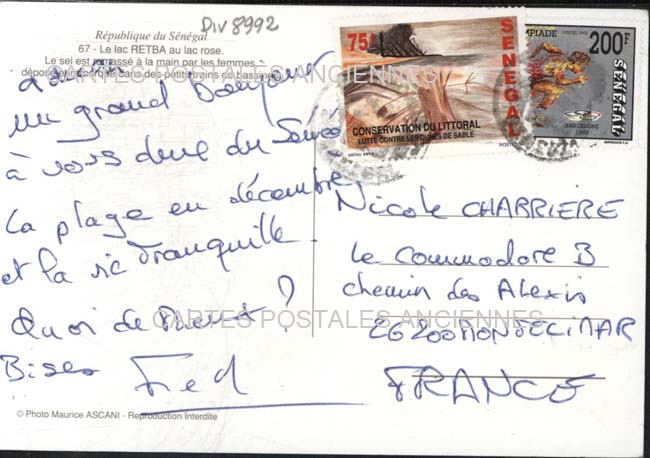 Div 8992
République du Sénégal
67 - Le lac RETBA au lac rose.
Le sel est ramassé à la main par les femmes
un grand bonjour
à vous deux du
La plage en décembre
et la vie tranquille.
Quoi de mieux ?
Bises Fred
© Photo Maurice ASCANI - Reproduction Interdite
75F
SENEGAL
CONSERVATION DU LITTORAL
LUTTE CONTRE LES DUNES DE SABLE
POSTES 1992
200F
SÉNÉGAL
BARCELONE
1992
Nicole CHARRIERE
Le Commodore B
chemin des Alexis
26200 MONTELIMAR
FRANCE
CARTES POSTALES ANCIENNES
CARTES POSTALES ANCIENNES